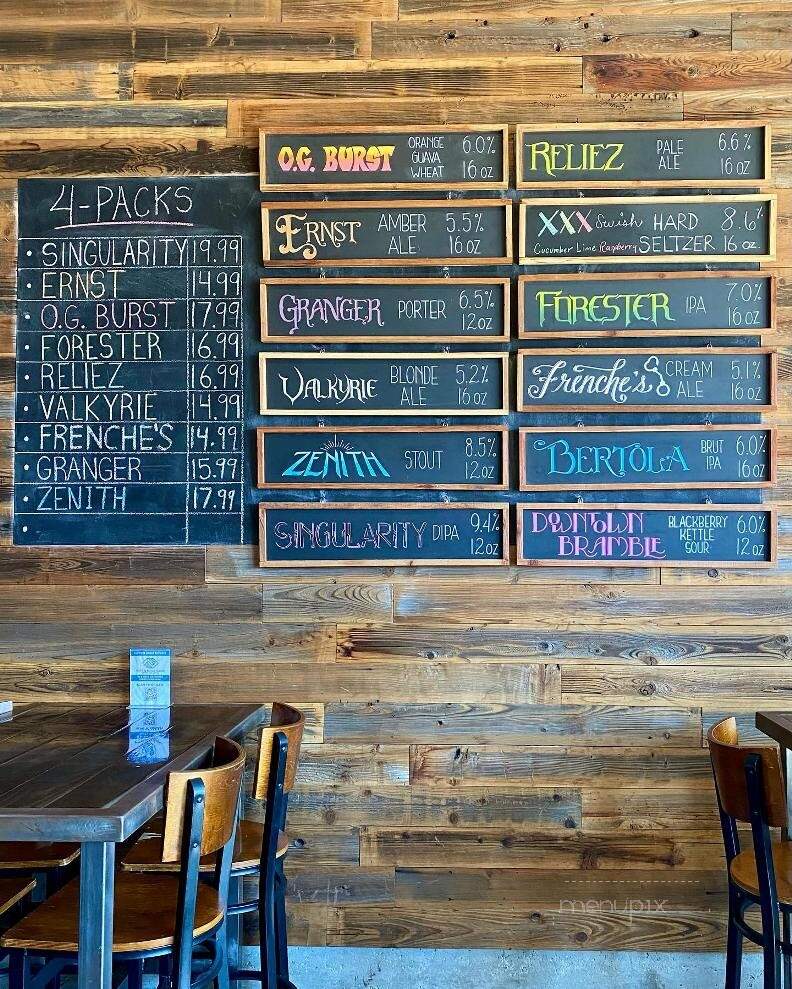 4-PACKS
• SINGULARITY 19.99
• ERNST 14.99
• O.G. BURST 17.99
• FORESTER 16.99
• RELIEZ 16.99
• VALKYRIE 14.99
• FRENCHE'S 14.99
• GRANGER 15.99
• ZENITH 17.99
•
O.G. BURST ORANGE GUAVA WHEAT 6.0% 16 oz
ERNST AMBER ALE 5.5% 16 oz
GRANGER PORTER 6.5% 12 oz
VALKYRIE BLONDE ALE 5.2% 16 oz
ZENITH STOUT 8.5% 12 oz
SINGULARITY DIPA 9.4% 12 oz
RELIEZ PALE ALE 6.6% 16 oz
XXX Swish HARD 8.6%
Cucumber Lime Raspberry SELTZER 16 oz.
FORESTER IPA 7.0% 16 oz
Frenche's CREAM ALE 5.1% 16 oz
BERTOLA BRUT IPA 6.0% 16 oz
DOWNTOWN BRAMBLE BLACKBERRY KETTLE SOUR 6.0% 12 oz
menupix